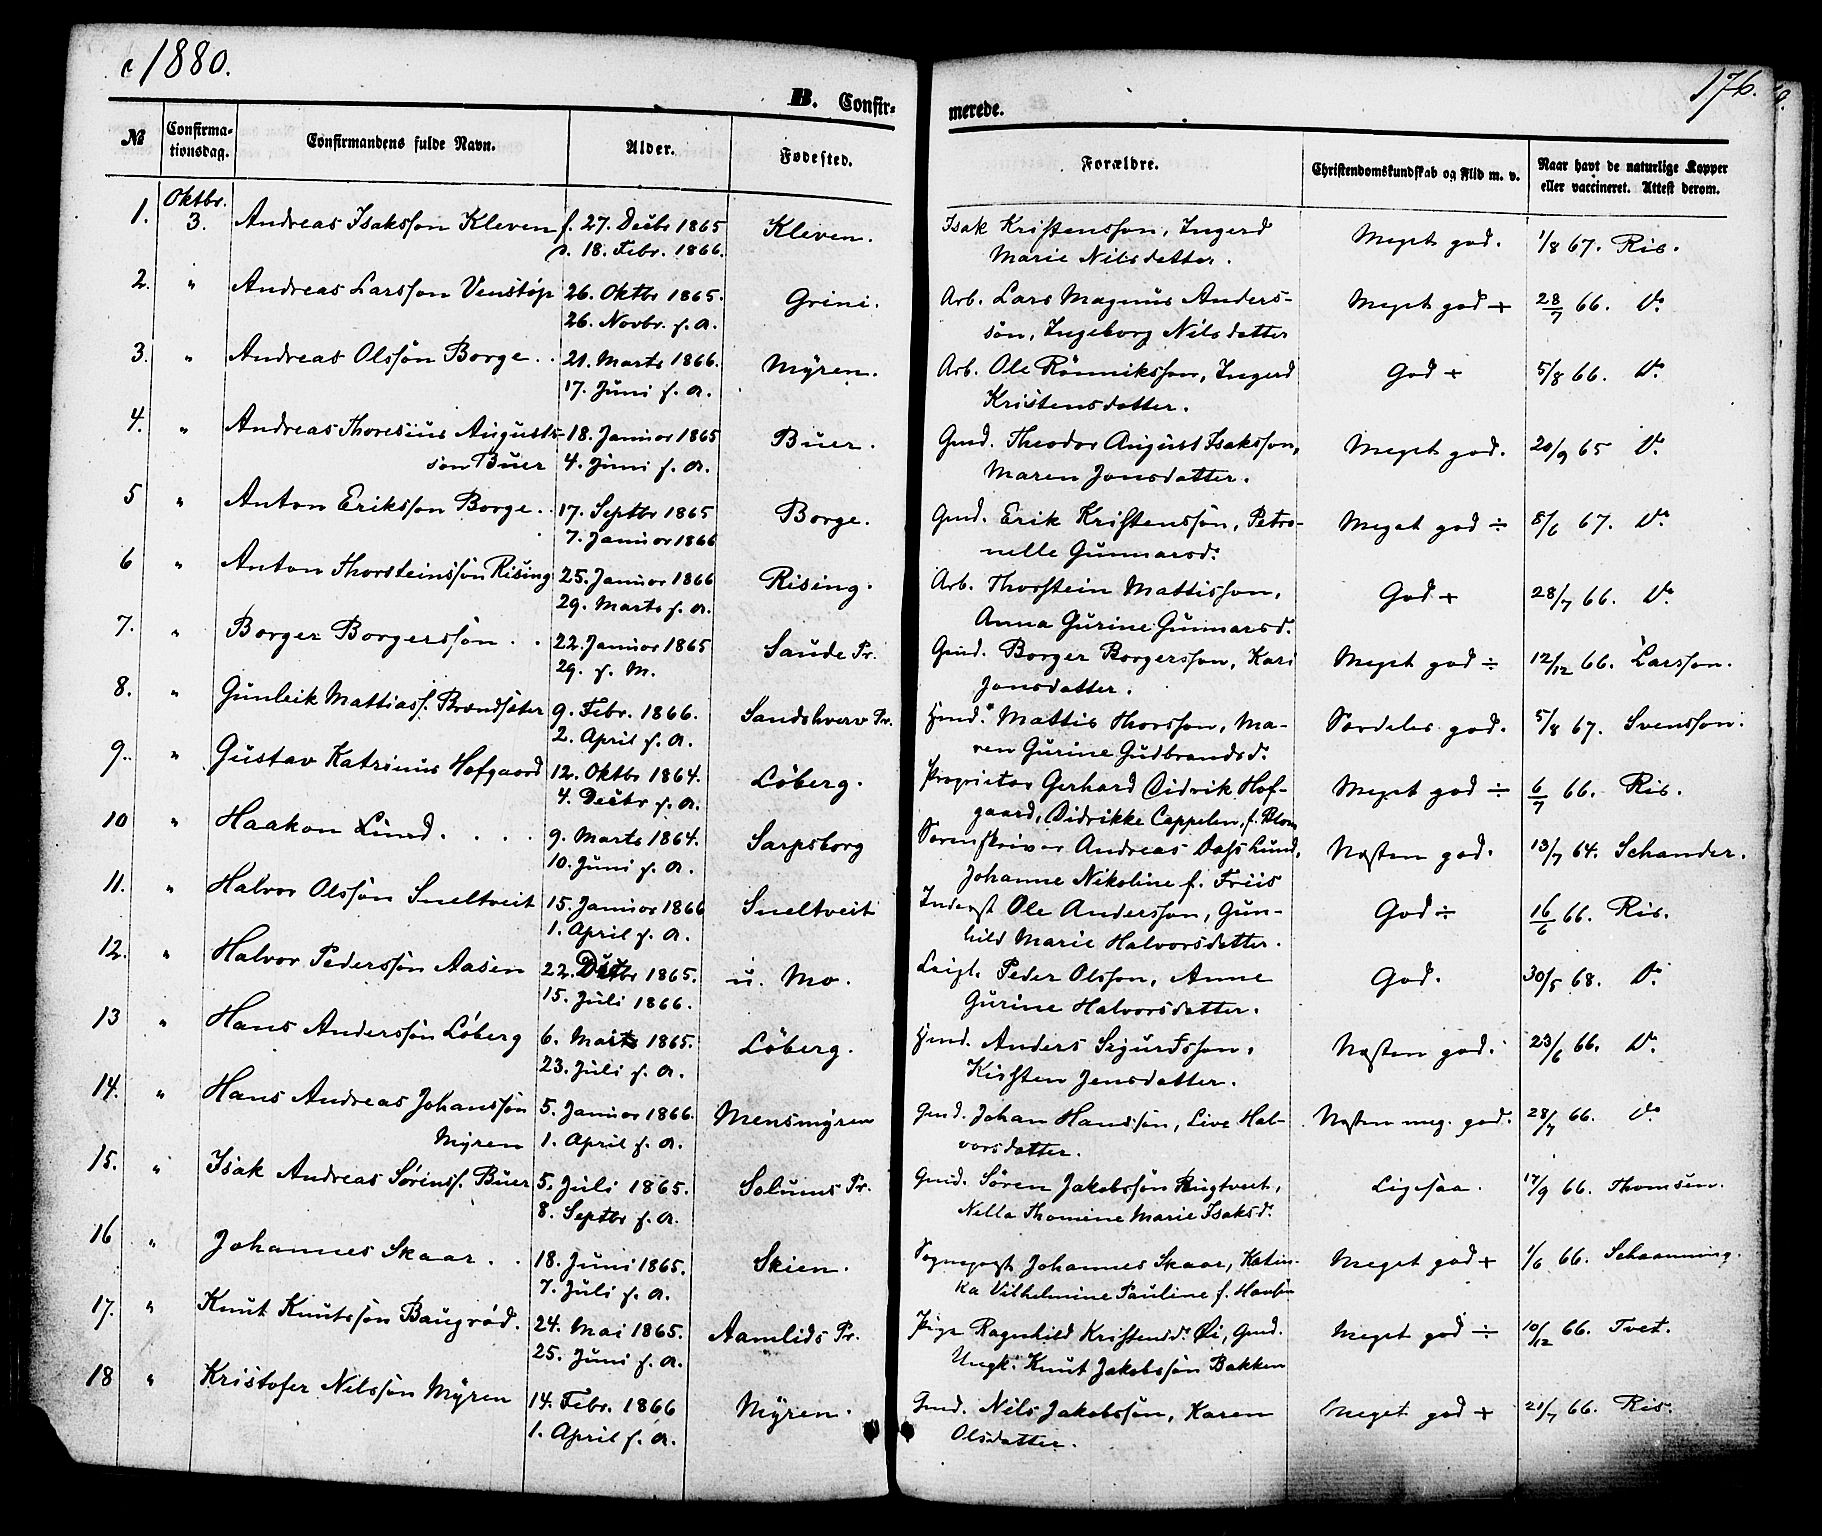 1880.
176.
B. Confir-
merede.
№
Confirma-
tionsdag.
Confirmandens fulde Navn.
Alder.
Fødested.
Forældre.
Christendomskundskab og Flid m. v.
Naar havt de naturlige Kopper
eller vaccineret. Attest derom.
1. Oktbr. 3. Andreas Isaksson Kleven f. 27. Decbr 1865 Kleven. Isak Kristensson, Ingerd Meget god. 1/8 67. Ris.
d. 18. Febr. 1866. Marie Nilsdatter.
2. " Andreas Larsson Venstøp 26. Oktbr 1865. Grini. Arb. Lars Magnus Anders- Meget god + 28/7 66. Do
26. Novbr. s. A. søn, Ingeborg Nilsdatter
3. " Andreas Olssøn Borge . . 21. Marts 1866. Myren. Arb. Ole Rønnikssøn, Ingerd God + 5/8 66. Do
17. Juni s. A. Kristensdatter.
4. " Andreas Thoresius Augusts- 18. Januar 1865 Buer. Gmd. Theodor August Isaksson, Meget god. 20/9 65 Do
søn Buer 4. Juni s. A. Maren Jonsdatter.
5 " Anton Eriksson Borge . . 17. Septbr 1865 Borge. Gmd. Erik Kristenssøn, Petro- Meget god ÷ 8/6 67. Do
7. Januar 1866 nelle Gunnarsd.
6 " Anton Thorsteinssøn Rising 25. Januar 1866 Rising. Arb. Thorstein Mattisson, God + 28/7 66. Do
29. Marts s. A. Anna Gurine Gunnarsd.
7. " Borger Borgerssøn . . 22. Januar 1865 Saude Pr. Gmd. Borger Borgersson, Kari Meget god ÷ 12/12 66. Larsson.
29. s. M. Jonsdatter.
8. " Gunleik Mattiass. Brændsæter 9. Febr. 1866. Sandshverv Pr. Hmd. Mattis Thorsson, Ma- Særdeles god. 5/8 67. Svensson.
2. April s. A. ren Gurine Gudbrandsd.
9. " Gustav Katrinus Hofgaard 12. Oktbr 1864. Løberg. Proprietær Gerhard Didrik Hof- Meget god ÷ 6/7 66. Ris.
4. Decbr s. A. gaard, Didrikke Cappelen, f. Blom
10 " Haakon Lund. . . . 9. Marts 1864. Sarpsborg Sorenskriver Andreas Dass Lund, Næsten god. 13/7 64. Schander.
10. Juni s. A. Johanne Nikoline f. Friis
11. " Halvor Olssøn Sneltveit 15. Januar 1866 Sneltveit Inderst Ole Anderssøn, Gun- God ÷ 16/6 66. Ris.
1. April s. A. hild Marie Halvorsdatter.
12. " Halvor Pederssøn Aasen 22. Decbr 1865. u. Mo. Leigl. Peder Olsson, Anne God. 30/5 68. Do
15. Juli 1866. Gurine Halvorsdatter.
13 " Hans Anderssøn Løberg 6. Marts 1865. Løberg. Hmd. Anders Sigurdsson, Næsten god. 23/6 66. Do
23. Juli s. A. Kirsten Jensdatter.
14. " Hans Andreas Johanssøn 5. Januar 1866. Mensmyren Gmd. Johan Hanssøn, Live Hal- Næsten meg. god. 28/7 66. Do
Myren 1. April s. A. vorsdatter.
15. " Isak Andreas Sørenss. Buer 5. Juli 1865. Solums Pr. Gmd. Søren Jakobssøn Rugtvert, Ligesaa. 17/9 66. Thomsen.
8. Septbr s. A. Nella Thomine Marie Isaksd.
16 " Johannes Skaar . . 18. Juni 1865. Skien. Sogneprest Johannes Skaar, Katin- Meget god + 1/6 66. Schaanning.
7. Juli s. A. ka Vilhelmine Pauline f.
17. " Knut Knutssøn Baugrød. 24. Mai 1865. Aamlids Pr. Pige Ragnhild Kristensd. Øi, Gmd. Meget god ÷ 10/12 66. Tvet.
25. Juni s. A. Ungk. Knut Jakobssøn Bakken
18 " Kristofer Nilssøn Myren 14. Febr. 1866 Myren. Gmd. Nils Jakobssøn, Karen Meget god + 21/7 66. Ris.
1. April s. A. Olsdatter.